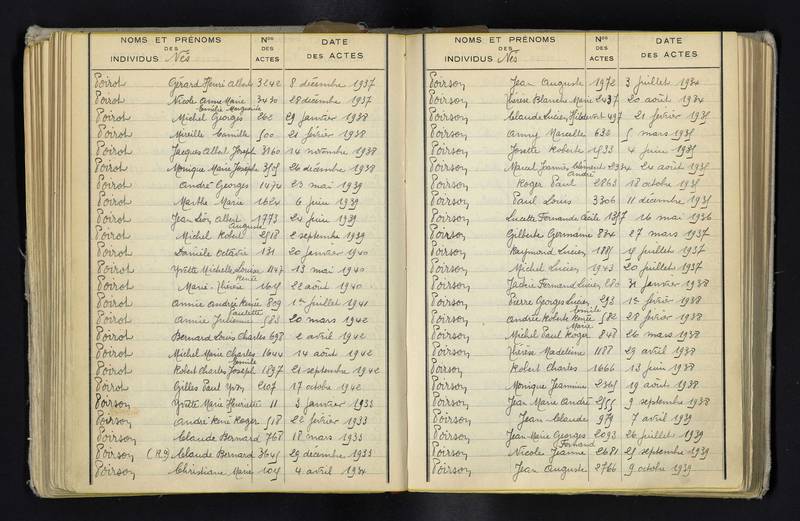 NOMS ET PRÉNOMS
DES
INDIVIDUS Nés
Nos
DES
ACTES
DATE
DES ACTES
Poirot Gérard Henri Albert 3242 8 décembre 1937
Poirot Nicole Anne Marie 3430 28 décembre 1937
Emilie Marguerite
Poirot Michel Georges 262 29 janvier 1938
Poirot Mireille Camille 500 21 février 1938
Poirot Jacques Albert Joseph 3160 14 novembre 1938
Poirot Monique Marie Joseph 26 décembre 1938
Poirot André Georges 1474 23 mai 1939
Poirot Marthe Marie 1624 6 juin 1939
Poirot Jean Léon Albert 1773 24 juin 1939
Auguste
Poirot Michel Robert 2518 2 septembre 1939
Poirot Danièle Octavie 131 20 janvier 1940
Poirot Yvette Michelle Louise 1147 13 mai 1940
Renée
Poirot Marie-Thérèse 1605 22 août 1940
Poirot Annie Andrée Renée 809 1er juillet 1941
Paulette
Poirot Annie Julienne 583 20 mars 1942
Poirot Bernard Louis Charles 698 2 avril 1942
Poirot Michel Marie Charles 1644 14 août 1942
Camille
Poirot Robert Charles Joseph 1897 21 septembre 1942
Poirot Gilles Paul Yvon 2107 17 octobre 1942
Poirson Yvette Marie Henriette 11 3 janvier 1933
Poirson André René Roger 518 22 février 1933
Poirson Claude Bernard 768 18 mars 1933
Poirson Claude Bernard 3645 29 décembre 1933
Poirson Christiane Marie 1005 4 avril 1934
NOMS ET PRÉNOMS
DES
INDIVIDUS Nés
Nos
DES
ACTES
DATE
DES ACTES
Poirson Jean Auguste 1972 3 juillet 1934
Poirson Blanche Marie 2437 20 août 1934
Poirson Claude Lucien Hildevert 497 21 février 1935
Poirson Anny Marcelle 632 5 mars 1935
Poirson Josette Roberte 1533 4 juin 1935
Poirson Marcel James Clément 2334 24 août 1935
André
Poirson Roger Paul 2863 18 octobre 1935
Poirson Paul Louis 3306 11 décembre 1935
Poirson Lucette Fernande Cécile 1357 16 mai 1936
Poirson Gilberte Germaine 884 27 mars 1937
Poirson Raymond Lucien 1885 9 juillet 1937
Poirson Michel Lucien 1943 20 juillet 1937
Poirson Fernand Lucien 280 31 janvier 1938
Poirson Pierre Georges Lucien 293 1er février 1938
Camille
Poirson Andrée Roberte Renée 582 28 février 1938
Marie
Poirson Michel Paul Roger 848 26 mars 1938
Poirson Thérèse Madeleine 1188 29 avril 1938
Poirson Robert Charles 1666 13 juin 1938
Poirson Monique Jeannine 2365 19 août 1938
Poirson Jean Marie André 2555 9 septembre 1938
Poirson Jean Claude 979 7 avril 1939
Poirson Jean-Marie Georges 2093 26 juillet 1939
Fernand
Poirson Nicole Jeanne 2681 25 septembre 1939
Poirson Jean Auguste 2766 9 octobre 1939